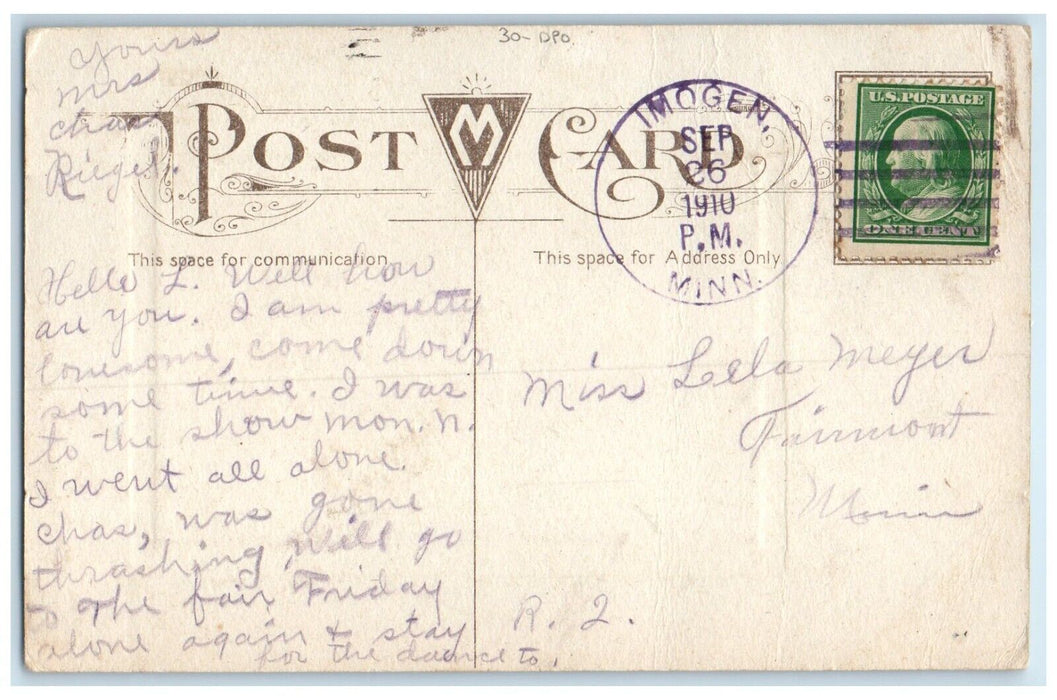 30- DPO
POST CARD
M
IMOGEN,
SEP
26
1910
P.M.
MINN.
U.S. POSTAGE
ONE CENT
This space for communication
This space for Address Only
Hello L. Well how
are you. I am pretty
lonesome, come down
some time. I was
to the show mon. n.
I went all alone.
chas, was gone
thrashing, will go
to the fair Friday
alone again & stay
for the dance to.
Yours
Mrs
chas.
Riegel.
Miss Lela Meyer
Fairmont
Minn
R. 2.